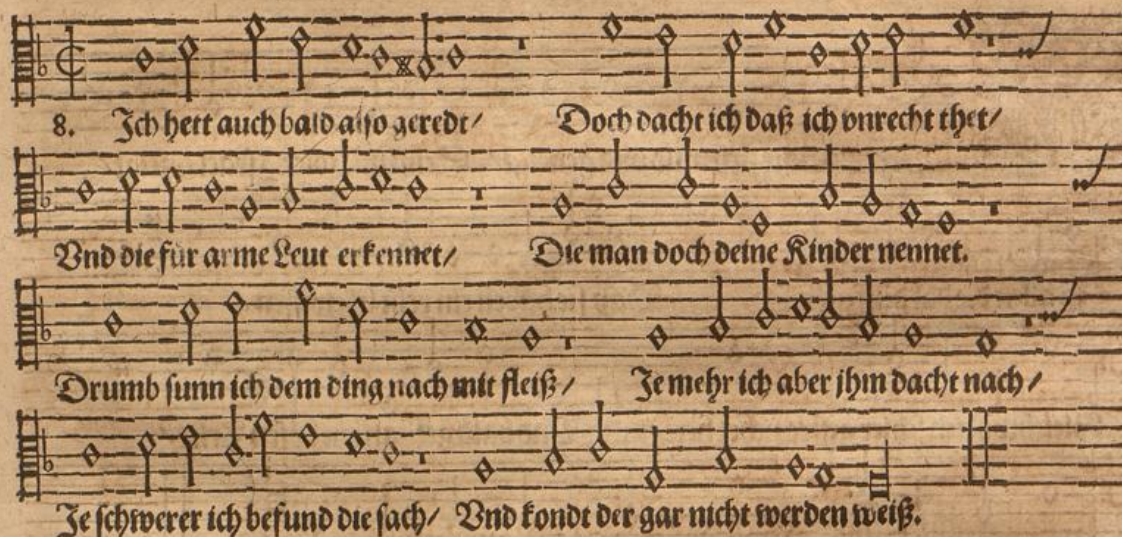 8. Ich hett auch bald also geredt/ Doch dacht ich daß ich vnrecht thet/
Vnd die für arme Leut erkennet/ Die man doch deine Kinder nennet.
Drumb sunn ich dem ding nach mit fleiß/ Je mehr ich aber jhm dacht nach/
Je schwerer ich befund die sach/ Vnd kondt der gar nicht werden weiß.